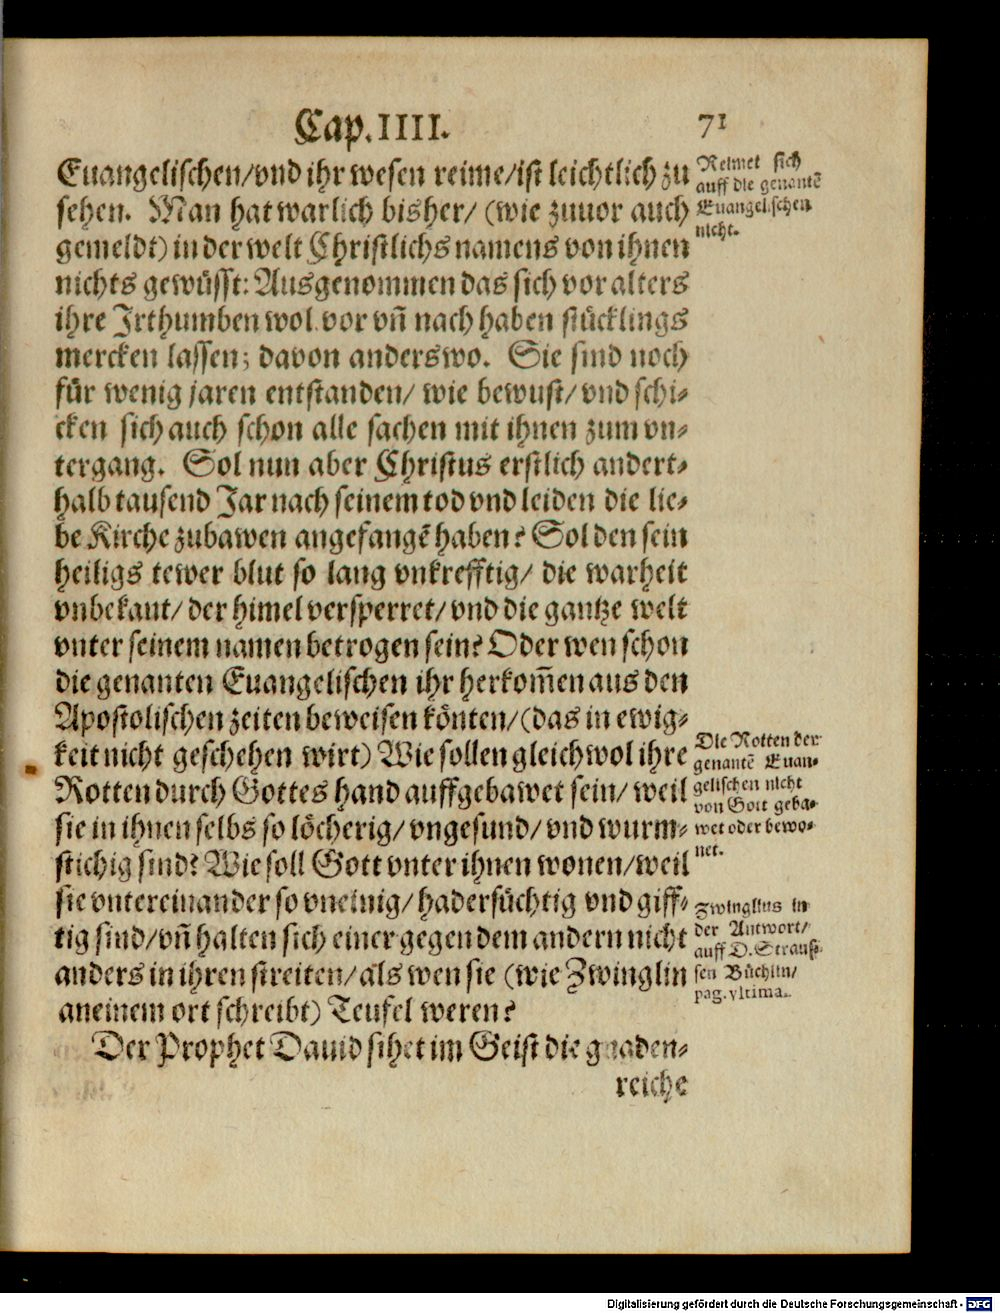 Cap. IIII. 71
Euangelischen/vnd ihr wesen reime/ist leichtlich zu
sehen. Man hat warlich bisher/ (wie zuuor auch
gemeldt) in der welt Christlichs namens von ihnen
nichts gewüsst: Ausgenommen das sich vor alters
ihre Irthumben wol vor vñ nach haben stücklings
mercken lassen; davon anderswo. Sie sind noch
für wenig jaren entstanden/ wie bewust/ vnd schi-
cken sich auch schon alle sachen mit ihnen zum vn-
tergang. Sol nun aber Christus erstlich andert-
halb tausend Jar nach seinem tod vnd leiden die lie-
be Kirche zubawen angefangẽ haben? Sol den sein
heiligs tewer blut so lang vnkrefftig/ die warheit
vnbekant/ der himel versperret/ vnd die gantze welt
vnter seinem namen betrogen sein? Oder wen schon
die genanten Euangelischen ihr herkom̃en aus den
Apostolischen zeiten beweisen könten/ (das in ewig-
keit nicht geschehen wirt) Wie sollen gleichwol ihre
Rotten durch Gottes hand auffgebawet sein/ weil
sie in ihnen selbs so löcherig/ vngesund/ vnd wurm-
stichig sind? Wie soll Gott vnter ihnen wonen/ weil
sie vntereinander so vneinig/ hadersüchtig vnd giff-
tig sind/ vñ halten sich einer gegen dem andern nicht
anders in ihren streiten/ als wen sie (wie Zwinglin
an einem ort schreibt) Teufel weren?
Der Prophet Dauid sihet im Geist die gnaden-
reiche
Reimet sich
auff die genantẽ
Euangelischen
nicht.
Die Rotten der
genantẽ Euan-
gelischen nicht
von Gott geba-
wet oder bewo-
net.
Zwinglius in
der Antwort/
auff D. Strauß-
sen Büchlin/
pag. vltima.
Digitalisierung gefördert durch die Deutsche Forschungsgemeinschaft - DFG